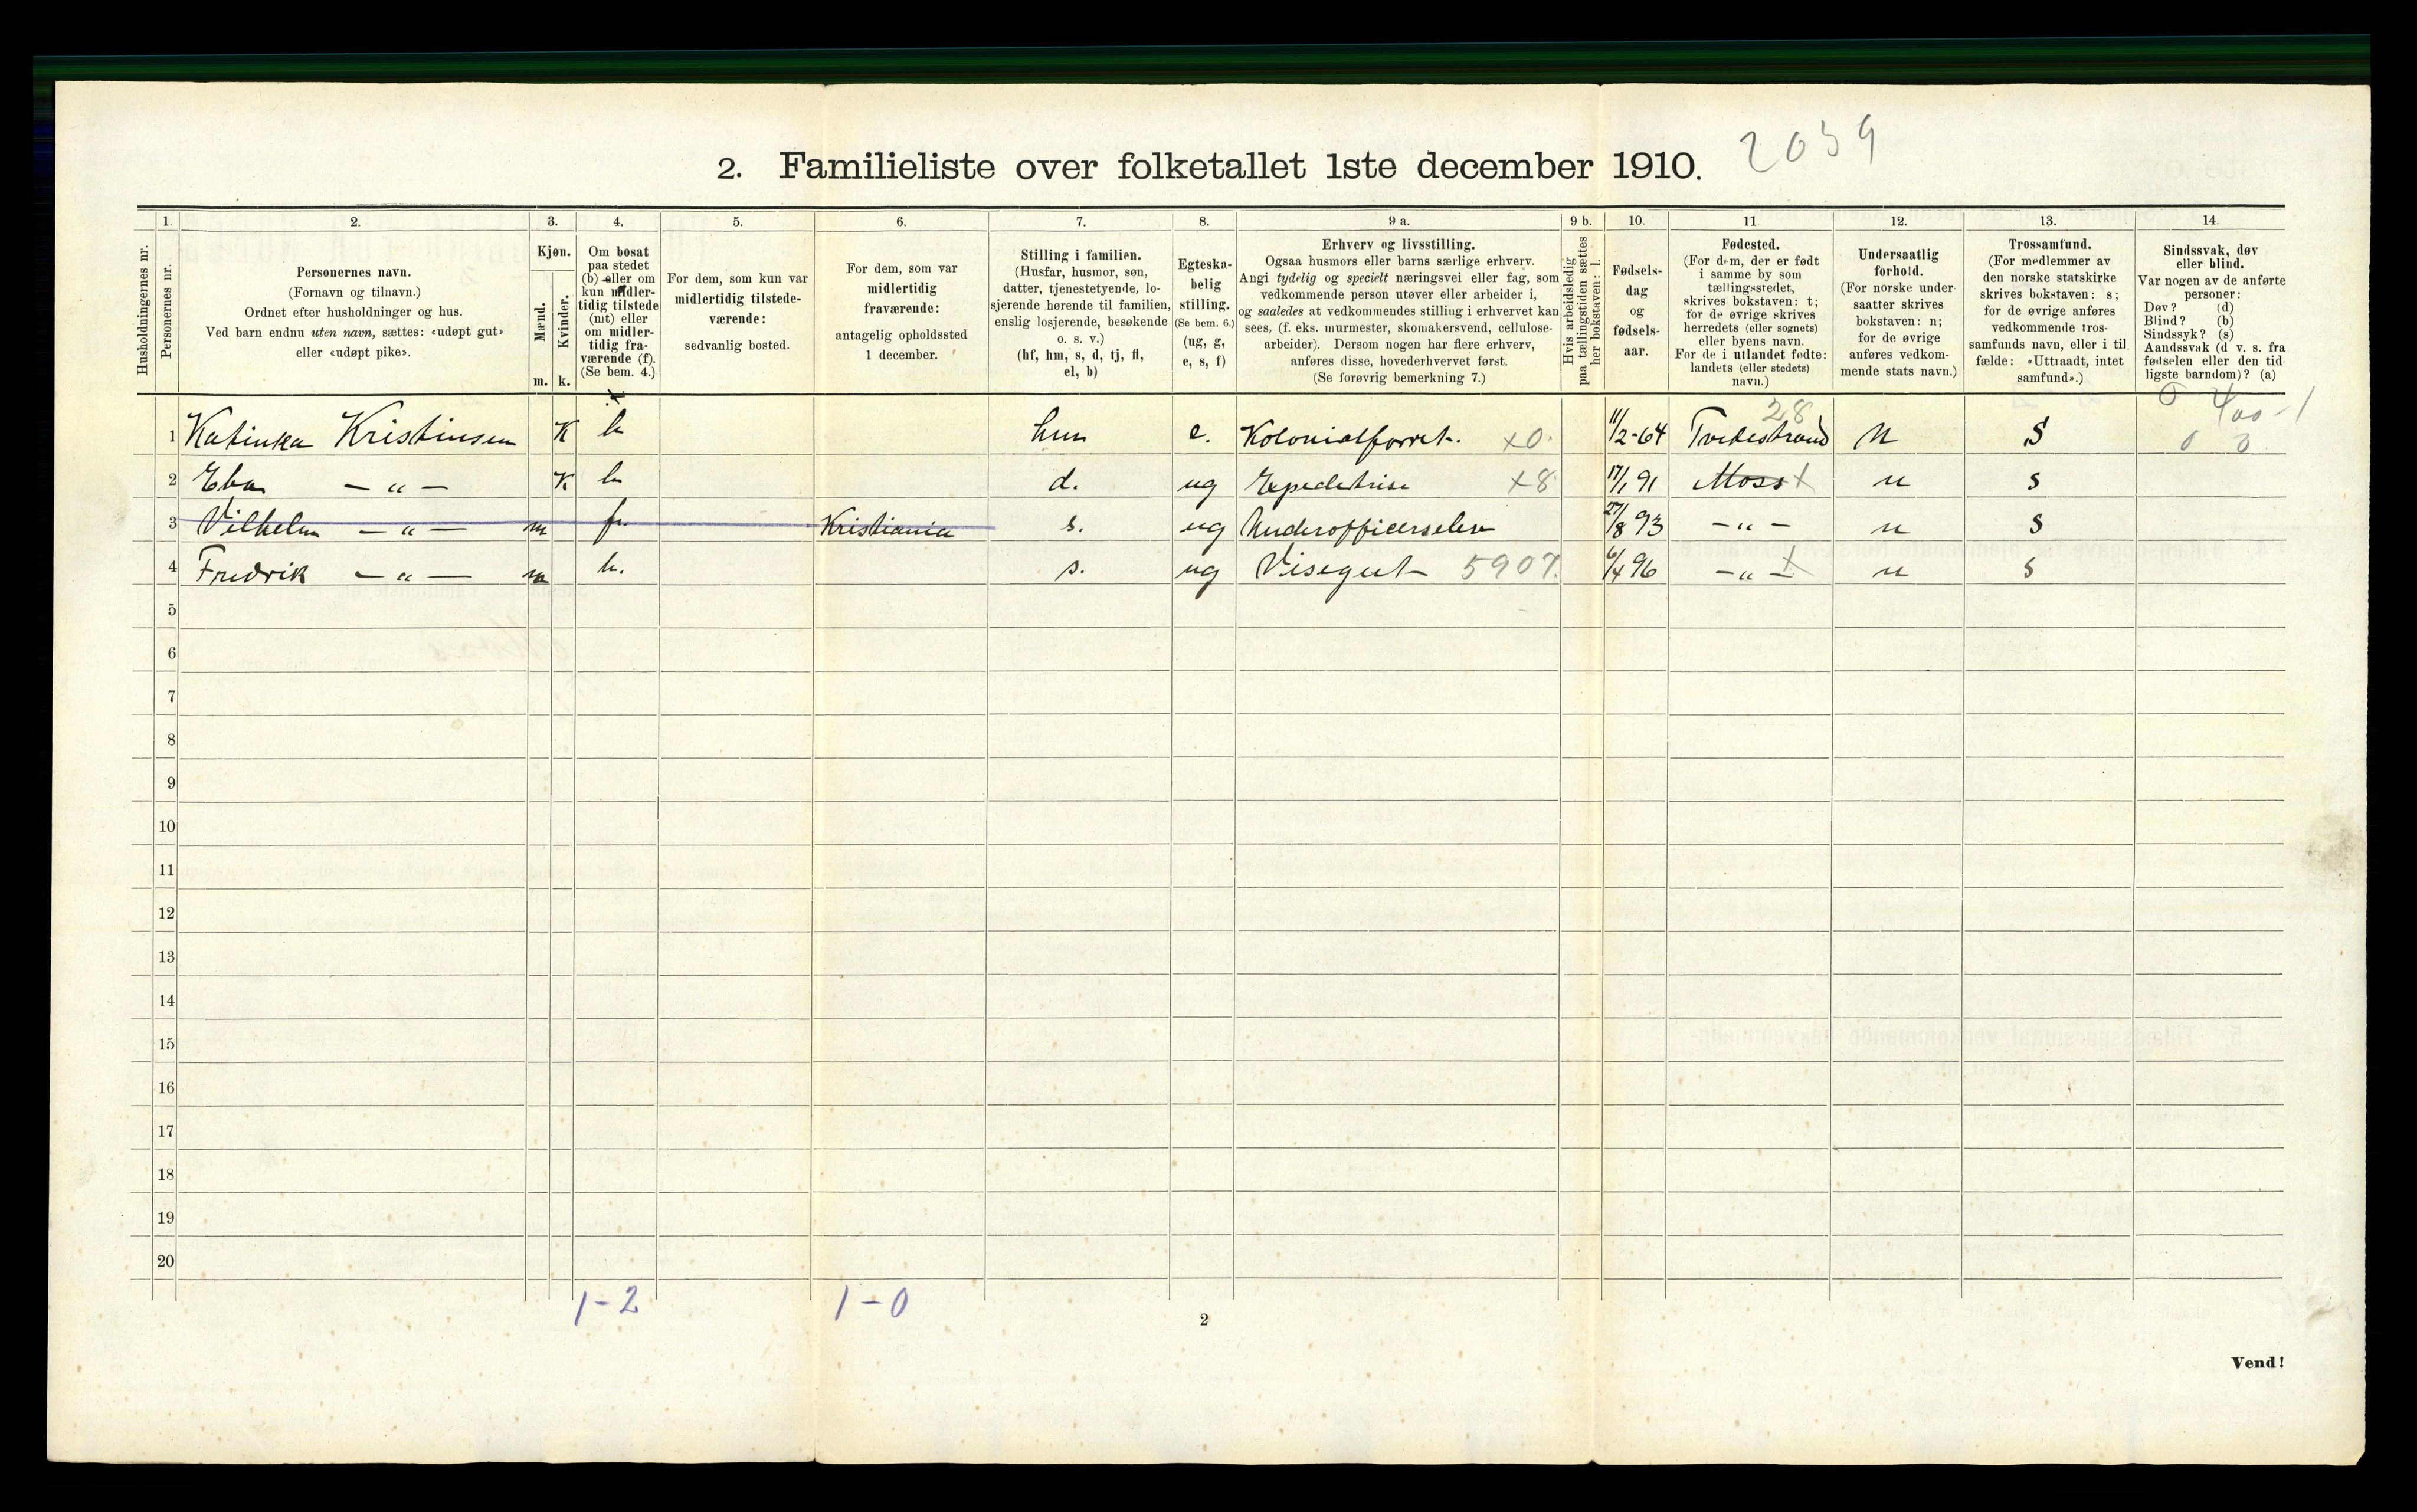 2. Familieliste over folketallet 1ste december 1910. 2039
Husholdningernes nr.
1.
Personernes nr.
2.
Personernes navn.
(Fornavn og tilnavn.)
Ordnet efter husholdninger og hus.
Ved barn endnu uten navn, sættes: «udøpt gut»
eller «udøpt pike».
3.
Kjøn.
Mænd.
Kvinder.
m. k.
4.
Om bosat
paa stedet
(b) eller om
kun midler-
tidig tilstede
(mt) eller
om midler-
tidig fra-
værende (f).
(Se bem. 4.)
5.
For dem, som kun var
midlertidig tilstede-
værende:
sedvanlig bosted.
6.
For dem, som var
midlertidig
fraværende:
antagelig opholdssted
1 december.
7.
Stilling i familien.
(Husfar, husmor, søn,
datter, tjenestetyende, lo-
sjerende hørende til familien,
enslig losjerende, besøkende
o. s. v.)
(hf, hm, s, d, tj, fl,
el, b)
8.
Egteska-
belig
stilling.
(Se bem. 6.)
(ug, g,
e, s, f)
9 a.
Erhverv og livsstilling.
Ogsaa husmors eller barns særlige erhverv.
Angi tydelig og specielt næringsvei eller fag, som
vedkommende person utøver eller arbeider i,
og saaledes at vedkommendes stilling i erhvervet kan
sees, (f. eks. murmester, skomakersvend, cellulose-
arbeider). Dersom nogen har flere erhverv,
anføres disse, hovederhvervet først.
(Se forøvrig bemerkning 7.)
9 b.
Hvis arbeidsledig
paa tællingstiden sættes
her bokstaven: l.
10.
Fødsels-
dag
og
fødsels-
aar.
11
Fødested.
(For dem, der er født
i samme by som
tællingsstedet,
skrives bokstaven: t;
for de øvrige skrives
herredets (eller sognets)
eller byens navn.
For de i utlandet fødte:
landets (eller stedets)
navn.)
12.
Undersaatlig
forhold.
(For norske under-
saatter skrives
bokstaven: n;
for de øvrige
anføres vedkom-
mende stats navn.)
13.
Trossamfund.
(For medlemmer av
den norske statskirke
skrives bokstaven: s;
for de øvrige anføres
vedkommende tros-
samfunds navn, eller i til
fælde: «Uttraadt, intet
samfund».)
14.
Sindssvak, døv
eller blind.
Var nogen av de anførte
personer:
Døv? (d)
Blind? (b)
Sindssyk? (s)
Aandssvak (d v. s. fra
fødselen eller den tid
ligste barndom)? (a)
0 400-1
28
1 Katinka Kristinsen K b hm e. Kolonialforret. x0. 11/2-64 Tvedestrand n S 0 0
2 Eba — „ — K b d. ug Expeditrise x8 17/1 91 Moss x n s
3 Vilhelm — „ — m fr. Kristiania s. ug Underofficerselev 27/8 93 — „ — n S
4 Fredrik — „ — m b. s. ug Visegut 5907. 6/4 96 — „ — x n s
5
6
7
8
9
10
11
12
13
14
15
16
17
18
19
20
1-2 1-0
2
Vend!